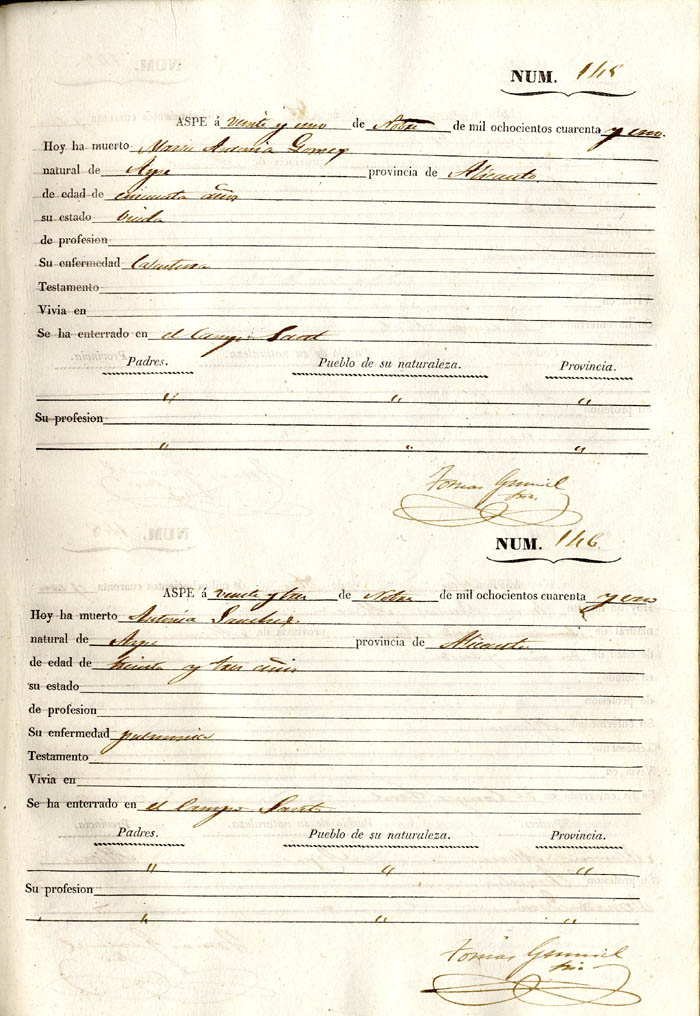 NUM. 145
ASPE á veinte y uno de Nobre de mil ochocientos cuarenta y uno.
Hoy ha muerto Maria Antonia Gomez
natural de Aspe provincia de Alicante
de edad de cincuenta años
su estado viuda
de profesion
Su enfermedad Calentura
Testamento
Vivia en
Se ha enterrado en el Campo Santo
Padres. Pueblo de su naturaleza. Provincia.
" " "
Su profesion
" " "
Tomás
NUM. 146
ASPE á veinte y tres de Nobre de mil ochocientos cuarenta y uno
Hoy ha muerto Antonia Sanchez
natural de Aspe provincia de Alicante
de edad de treinta y tres años
su estado
de profesion
Su enfermedad pulmonia
Testamento
Vivia en
Se ha enterrado en el Campo Santo
Padres. Pueblo de su naturaleza. Provincia.
" " "
Su profesion
" " "
Tomás